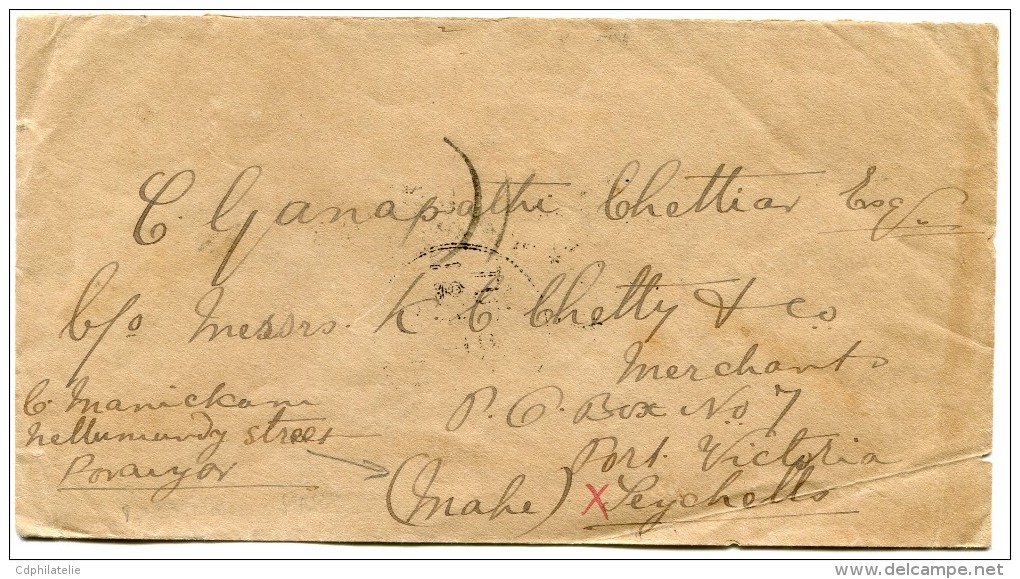 C. Ganapathi Chettiar Esq.
C/o Messrs. K. C Chetty & Co
Merchants
P. O. Box No 7
Port Victoria
(Mahe) X Seychells
C. Manickam
Nellumundy Street
Poraiyar
Cdphilatelie
www.delcampe.net